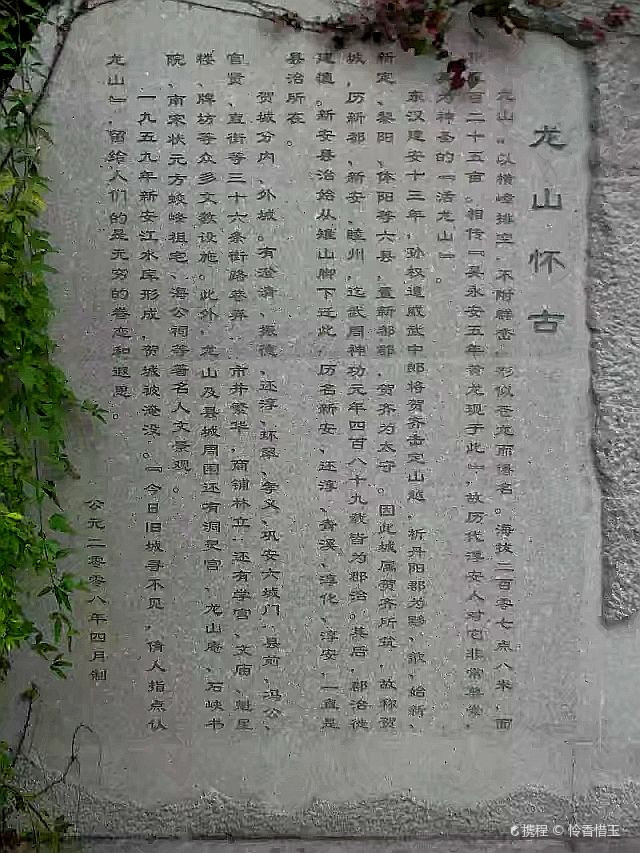 龙山怀古
龙山，以横嶂排空，不附群峦，形似苍龙而得名。海拔二百零七点八米，面
百二十五亩。相传『吴永安五年黄龙现于此』，故历代淳安人对它非常尊崇，
为神圣的『活龙山』。
东汉建安十三年，孙权遣威武中郎将贺齐击定山越，析丹阳郡为黟、歙、始新、
新定、黎阳、休阳等六县，置新都郡，贺齐为太守。因此城属贺齐所筑，故称贺
城，历新都、新安、睦州，迄武周神功元年四百八十九载皆为郡治。其后，郡治徙
建德。新安县治始从雉山脚下迁此，历名新安、还淳、青溪、淳化、淳安，一直是
县治所在。
贺城分内、外城。有澄清、振德、还淳、环翠、孝义、巩安六城门，县前、冯公、
官贤、直街等三十六条街路巷弄，市井繁华，商铺林立，还有学宫、文庙、魁星
楼、牌坊等众多文教设施。此外，龙山及县城周围还有洞灵宫、龙山庵、石峡书
院、南宋状元方蛟峰祖宅、海公祠等著名人文景观。
一九五九年新安江水库形成，贺城被淹没。『今日旧城寻不见，倩人指点认
龙山』，留给人们的是无穷的眷恋和遐思。
公元二零零八年四月制
携程 © 怜香惜玉